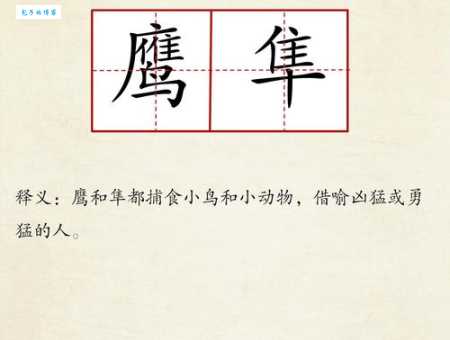 包子的博客
鹰隼
释义：鹰和隼都捕食小鸟和小动物，借喻凶猛或勇
猛的人。